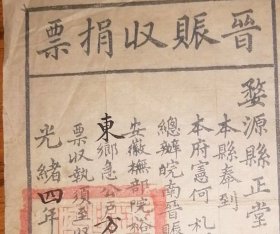 晉賑收捐票
婺源縣正堂
本縣奉到
本府憲何 札
總辦皖南晉賑
安徽撫部院裕
東鄉急公邑方
票收執須至
光緒四年